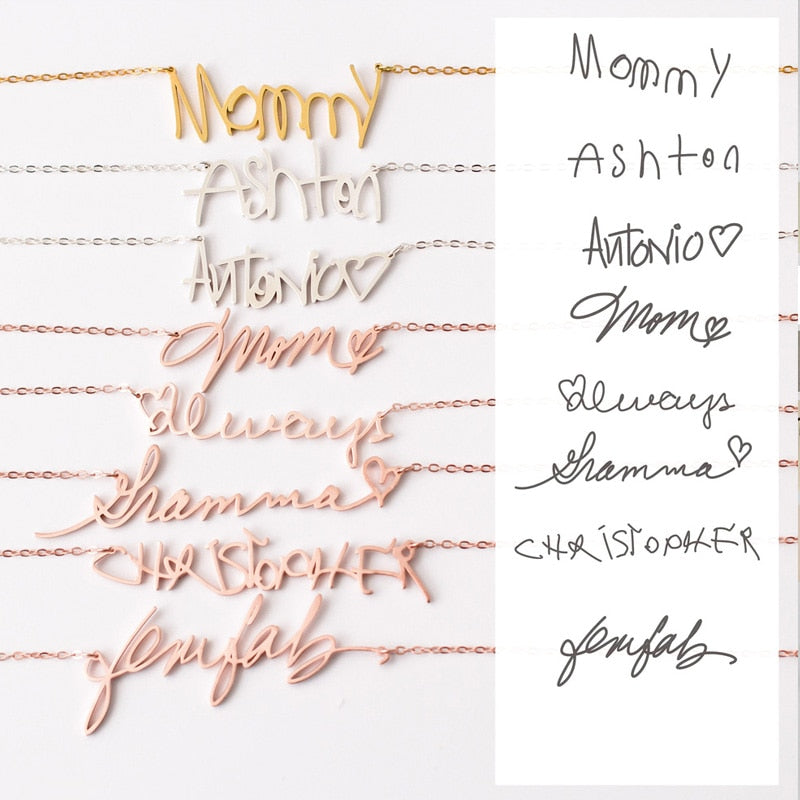 Mommy Mommy
Ashton Ashton
Antonio♡ Antonio♡
Mom♡ Mom♡
♡always ♡always
Gramma♡ Gramma♡
CHRISTOPHER CHRISTOPHER